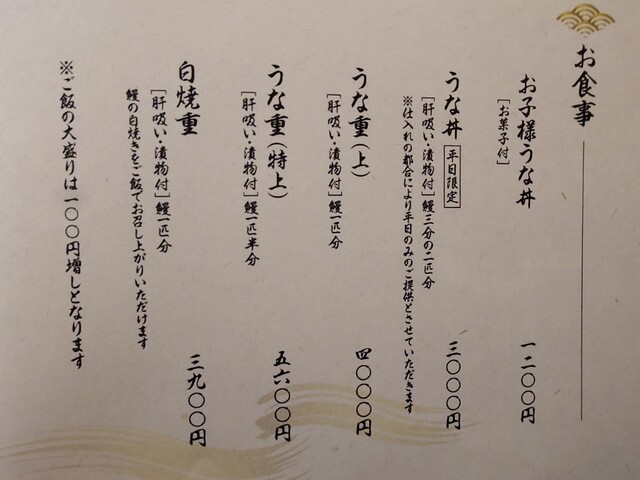 お食事
お子様うな丼 一二〇〇円
［お菓子付］
うな丼 平日限定 三〇〇〇円
［肝吸い・漬物付］鰻三分の二匹分
※仕入れの都合により平日のみのご提供とさせていただきます
うな重（上） 四〇〇〇円
［肝吸い・漬物付］鰻一匹分
うな重（特上） 五六〇〇円
［肝吸い・漬物付］鰻一匹半分
白焼重 三九〇〇円
［肝吸い・漬物付］鰻一匹分
鰻の白焼きをご飯でお召し上がりいただけます
※ご飯の大盛りは一〇〇円増しとなります